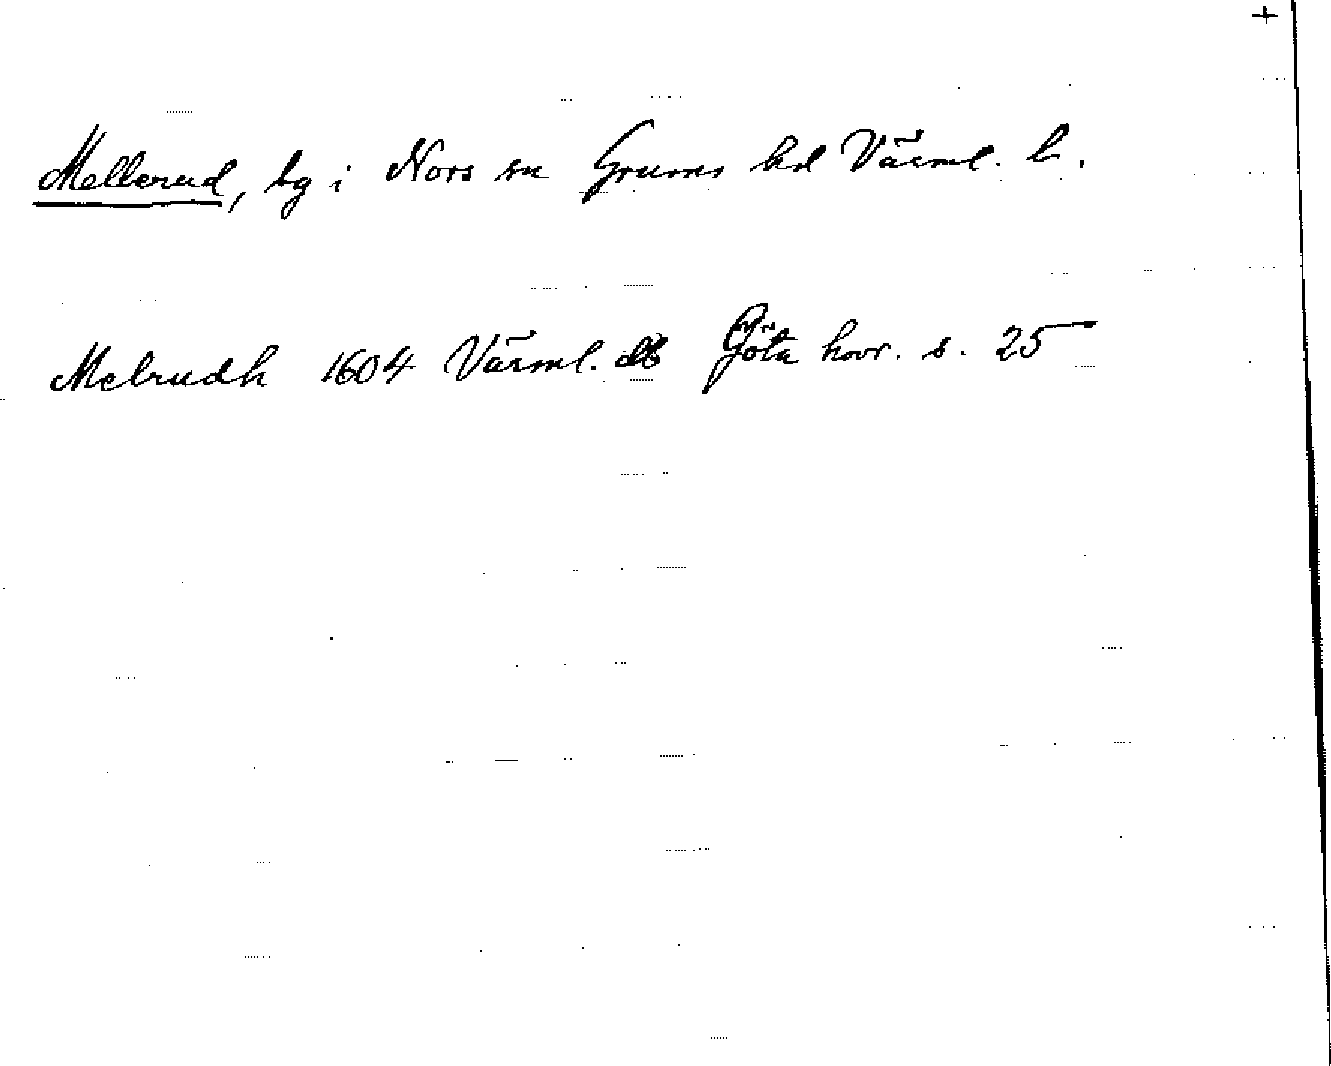 +
Mellerud, bg i Nors sn Grums hd Värml. l.
Melrudh 1604 Värml. db Göta hovr. s. 25